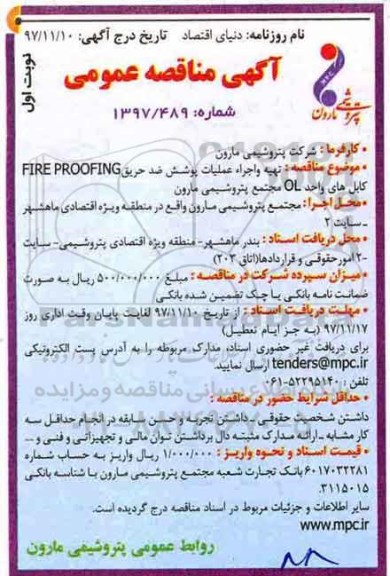 نام روزنامه: دنیای اقتصاد تاریخ درج آگهی: ۹۷/۱۱/۱۰
نوبت اول
MPC
پتروشیمی مارون
آگهی مناقصه عمومی
شماره: ۱۳۹۷/۴۸۹
• کارفرما: شرکت پتروشیمی مارون
• موضوع مناقصه: تهیه واجراء عملیات پوشش ضد حریق FIRE PROOFING
کابل های واحد OL مجتمع پتروشیمی مارون
• محل اجرا: مجتمع پتروشیمی مارون واقع در منطقه ویژه اقتصادی ماهشهر
ـ سایت ۲
• محل دریافت اسناد: بندر ماهشهر- منطقه ویژه اقتصادی پتروشیمی- سایت
۲- امورحقوقی و قراردادها(اتاق ۲۰۳)
• میزان سپرده شرکت در مناقصه: مبلغ ۵۰۰/۰۰۰/۰۰۰ ریال به صورت
ضمانت نامه بانکی یا چک تضمین شده بانکی
• مهلت دریافت اسناد: از تاریخ ۹۷/۱۱/۱۰ لغایت پایان وقت اداری روز
۹۷/۱۱/۱۷ (به جز ایام تعطیل)
برای دریافت غیر حضوری اسناد، مدارک مربوطه را به آدرس پست الکترونیکی
tenders@mpc.ir ارسال نمایید.
تلفن: ۵۲۲۹۵۱۴۰-۰۶۱
• حداقل شرایط حضور در مناقصه:
داشتن شخصیت حقوقی ـ داشتن تجربه و حسن سابقه در انجام حداقل سه
کار مشابه ـ ارائه مدارک مثبته دال برداشتن توان مالی و تجهیزاتی و فنی و ...
• قیمت اسناد و نحوه واریز: ۱/۰۰۰/۰۰۰ ریال واریز به حساب شماره
۶۰۱۷۰۳۲۲۸۱ بانک تجارت شعبه مجتمع پتروشیمی مارون با شناسه بانکی
۳۱۱۵۰۱۵.
سایر اطلاعات و جزئیات مربوط در اسناد مناقصه درج گردیده است.
www.mpc.ir
روابط عمومی پتروشیمی مارون